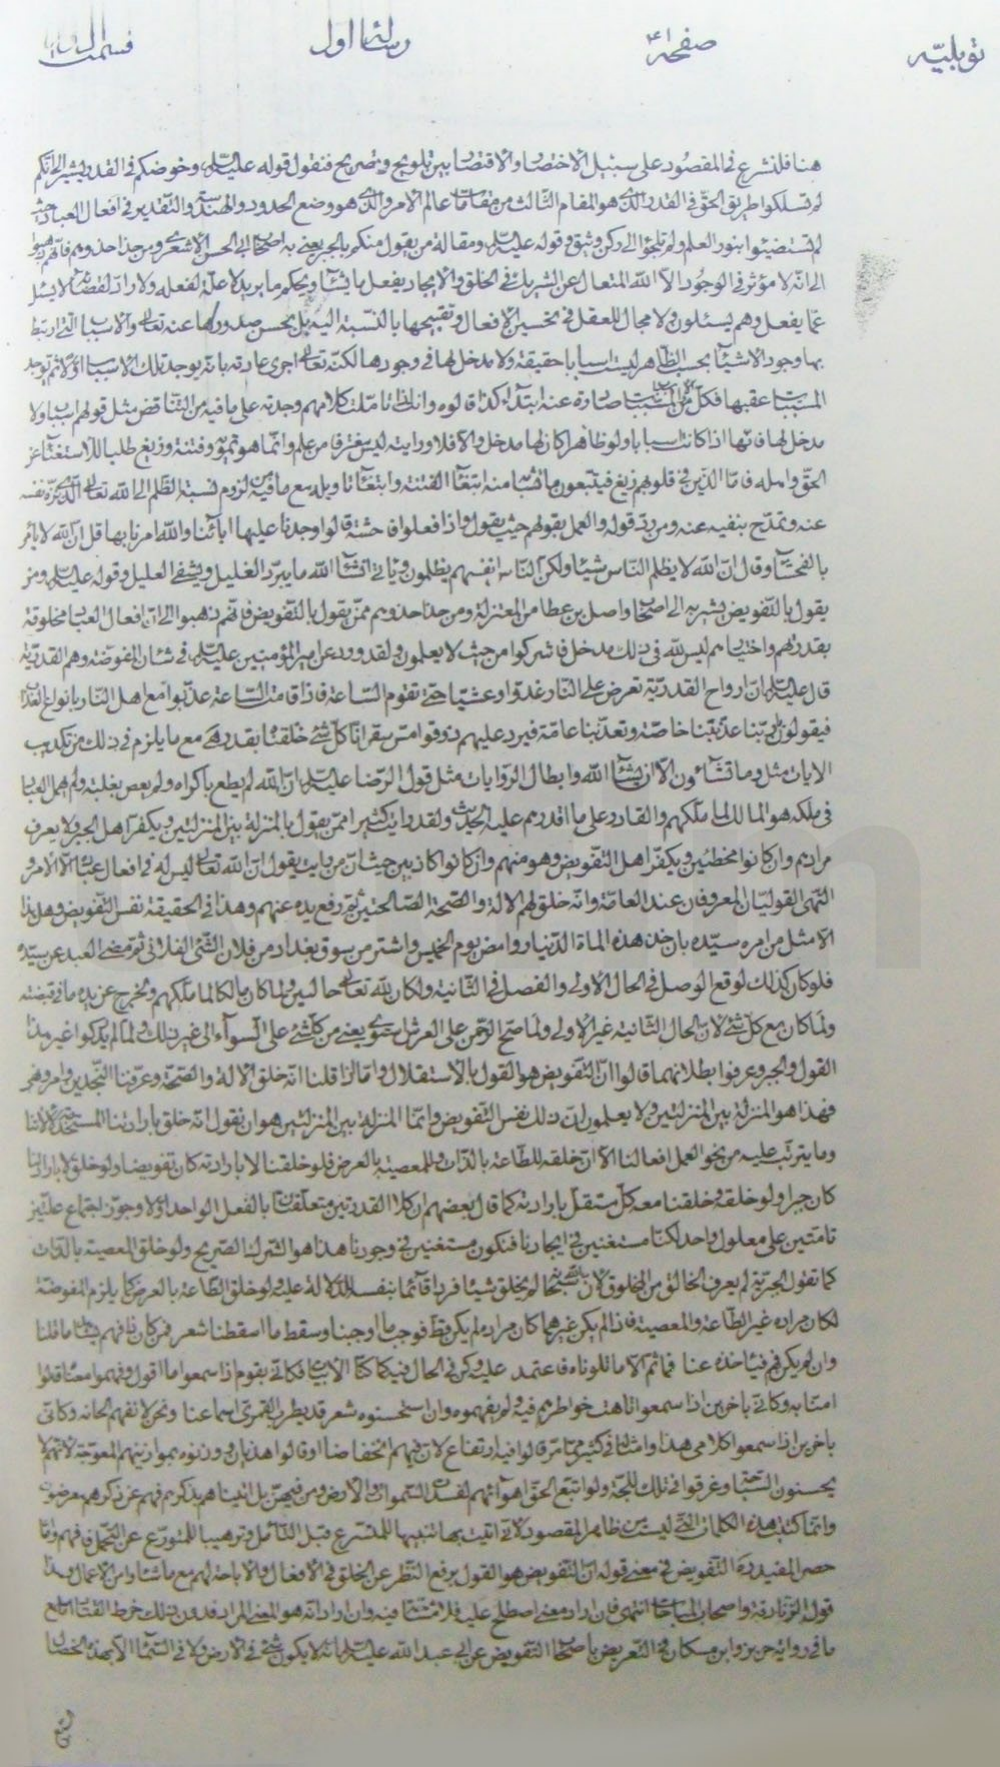 توبلیّه صفحه ۴۱ رسالهٔ اول قسمت
هنا فلنشرع فی المقصود علی سبیل الاختصار والاقتصار بین تلویح وتصریح فنقول قوله علیه السلم وخوضکم فی القدر یشیر الی انکم
لم تسلکوا طریق الحقّ فی القدر الذی هو المقام الثالث من مقامات عالم الامر والذی هو وضع الحدود والهندسة والتقدیر فی افعال العباد حیث
لم تستضیئوا بنور العلم ولم تلجؤا الی رکن وثیق وقوله علیه السلم ومقالة من یقول منکم بالجبر یعنی به اصحاب ابی الحسن الاشعری ومن حذا حذوهم فانّهم ذهبوا
الی انّه لا مؤثر فی الوجود الّا الله المتعال عن الشریک فی الخلق والایجاد یفعل ما یشاء ویحکم ما یرید لا علّة لفعله ولا رادّ لقضائه لا یسئل
عمّا یفعل وهم یسئلون ولا مجال للعقل فی تحسین الافعال وتقبیحها بالنّسبة الیه بل یحسن صدورها عنه تعالی والاسباب الّتی ارتبط
بها وجود الاشیاء بحسب الظّاهر لیست اسبابا حقیقة ولا مدخل لها فی وجودها لکنّه تعالی اجری عادته بانّه یوجد تلک الاسباب اوّلا ثم توجد
المسبّبات عقبها فکلّ من الاسباب والمسبّبات صادرة عنه ابتداء کذا قالوه وانک اذا تامّلت کلامهم وجدته علی ما فیه من التناقض مثل قولهم اسباب ولا
مدخل لها فانّها اذا کانت اسبابا ولو ظاهرا کان لها مدخل والّا فلا ورایته لیس عن معرفة ولا علم وانّما هو تمویه وفتنة وزیغ طلبا للاستغناء عن
الحقّ واهله فامّا الذین فی قلوبهم زیغ فیتّبعون ما تشابه منه ابتغاء الفتنة وابتغاء تاویله مع ما فیه من لزوم نسبة الظّلم الی الله تعالی الذی نزّه نفسه
عنه وتمدّح بنفیه عنه ومن ردّ قوله والعمل بقولهم حیث یقول واذا فعلوا فاحشة قالوا وجدنا علیها اباءنا والله امرنا بها قل انّ الله لا یامر
بالفحشاء وقال انّ الله لا یظلم النّاس شیئا ولکن النّاس انفسهم یظلمون ویاتی انشاء الله ما یبرّد الغلیل ویشفی العلیل وقوله علیه السلم ومن
یقول بالتّفویض یشیر به الی اصحاب واصل بن عطا من المعتزلة ومن حذا حذوهم ممّن یقول بالتّفویض فانّهم ذهبوا الی انّ افعال العباد مخلوقة
بقدرتهم واختیارهم لیس لله فی ذلک مدخل فاشرکوا من حیث لا یعلمون ولقد ورد عن امیر المؤمنین علیه السلم فی شان المفوّضة وهم القدریّة
قال علیه السلم انّ ارواح القدریّة تعرض علی النّار غدوّا وعشیّا حتّی تقوم السّاعة فاذا قامت السّاعة عذّبوا مع اهل النّار بانواع العذاب
فیقولون یا ربّنا عذّبتنا خاصّة وتعذّبنا عامّة فیردّ علیهم ذوقوا مسّ سقر انّا کلّ شیء خلقناه بقدر هی مع ما یلزم فی ذلک من تکذیب
الایات مثل وما تشاؤن الّا ان یشاء الله وابطال الرّوایات مثل قول الرّضا علیه السلم انّ الله لم یطع باکراه ولم یعص بغلبة ولم یهمل العباد
فی ملکه هو المالک لما ملّکهم والقادر علی ما اقدرهم علیه الحدیث ولقد رایت کثیرا ممّن یقول بالمنزلة بین المنزلتین ویکفّر اهل الجبر ولا یعرف
مرادهم وان کانوا مخطئین ویکفّر اهل التّفویض وهو منهم وان کانوا کاذبین حیث یقول انّ الله تعالی لیس له فی افعال عباده الّا الامر و
النّهی لقولیان المعروفان عند العامّة وانّه خلق لهم الالة والصّحة الصّالحتین ثم رفع یده عنهم وهذا فی الحقیقة نفس التّفویض وهل هذا
الّا مثل من امره سیّده بان خذ هذه المائة الدّینار وامض یوم الخمیس واشتر من سوق بغداد من فلان الشّیء الفلانی ثم مضی العبد عن سیّده
فلو کان کذلک لوقع الوصل فی الحال الاولی والفصل فی الثّانیة ولکان لله تعالی حالین ولما کان مالکا لما ملّکهم ولخرج عن یده ما فی قبضته
ولما کان مع کلّ شیء لانّ الحال الثّانیة غیر الاولی ولما صحّ الرّحمن علی العرش استوی یعنی من کلّ شیء علی السّواء الی غیر ذلک ولمّا لم یدرکوا غیر هذا
القول والجبر وعرفوا بطلانهما قالوا انّ التّفویض هو القول بالاستقلال وامّا اذا قلنا انّه خلق الالة والصّحة وعرّفنا النّجدین وامر ونهی
فهذا هو المنزلة بین المنزلتین ولا یعلمون انّ ذلک نفس التّفویض وانّما المنزلة بین المنزلتین هو ان نقول انّه خلق بارادتنا
وما یترتّب علیه من نحو العمل افعالنا الّا انّ خلقه للطّاعة بالذّات وللمعصیة بالعرض فلو خلقنا لا بارادته کان تفویضا ولو خلق لا بارادتنا
کان جبرا ولو خلقه وخلقنا معه کلّ مستقلّ بارادته کما قال بعضهم ان کلا القدرتین متعلّقتان بالفعل الواحد اوّلا وجوّز اجتماع علّتین
تامّتین علی معلول واحد لکنّا مستغنین فی ایجادنا فنکون مستغنین فی وجودنا هذا هو الشّرک الصّریح ولو خلق المعصیة بالذّات
کما تقول الجبریّة لم یعرف الخالق من المخلوق لانّه سبحانه لم یخلق شیئا فردا قائما بنفسه للدّلالة علیه ولو خلق الطّاعة بالعرض کما یلزم المفوّضة
لکان مراده غیر الطّاعة والمعصیة فاذا لم یکن غیرهما کان مراده لم یکن قطّ فوجب ما اوجبنا وسقط ما اسقطنا شعر فمن کان ذا فهم یشاهد ما قلنا
وان لم یکن فهم فیاخذه عنّا فما ثمّ الّا ما تلوناه فاعتمد علیه وکن فی الحال فیه کما کنّا الابیات فکانّی بقوم اذا سمعوا ما اقول وفهموا معناه قالوا
امنّا به وکانّی باخرین اذا سمعوا تاهت خواطرهم فیه ولم یفهموه وان استحسنوه شعر قد یطرب القمریّ اسماعنا ونحن لا نفهم الحانه وکانّی
باخرین اذا سمعوا کلامی هذا وامثاله فی کثیر ممّا مرّ قالوا فیه ارتفاع لانّ فیهم انخفاضا او قالوا هذیان ووزنوه بموازینهم المعوجّة لانّهم لا
یحسنون السّباحة وغرقوا فی تلک اللّجّة ولو اتّبع الحقّ اهواءهم لفسدت السّموات والارض ومن فیهنّ بل اتیناهم بذکرهم فهم عن ذکرهم معرضون
وانّما کتبت هذه الکلمات الّتی لیست من ظاهر المقصود لانّی اتیت بها تنبیها للمتسرّع قبل التّأمّل وترهیبا للمتورّع عن التّجمّل فافهم وامّا
حصر المفید ره التّفویض فی معنی قوله انّ التّفویض هو القول برفع النّظر عن الخلق فی الافعال والاباحة لهم مع ما شاؤا من الاعمال وهذا
قول الزّنادقة واصحاب المباحات انتهی فان اراد معنی اصطلح علیه فلا مشاحّة فیه وان اراد انّه هو المعنی المراد فدون ذلک خرط القتاد
ما فی روایة حریز وابن مسکان فی التّعریض باصحاب التّفویض عن ابی عبد الله علیه السلم انه لا یکون شیء فی الارض ولا فی السّماء الّا بهذه الخصال